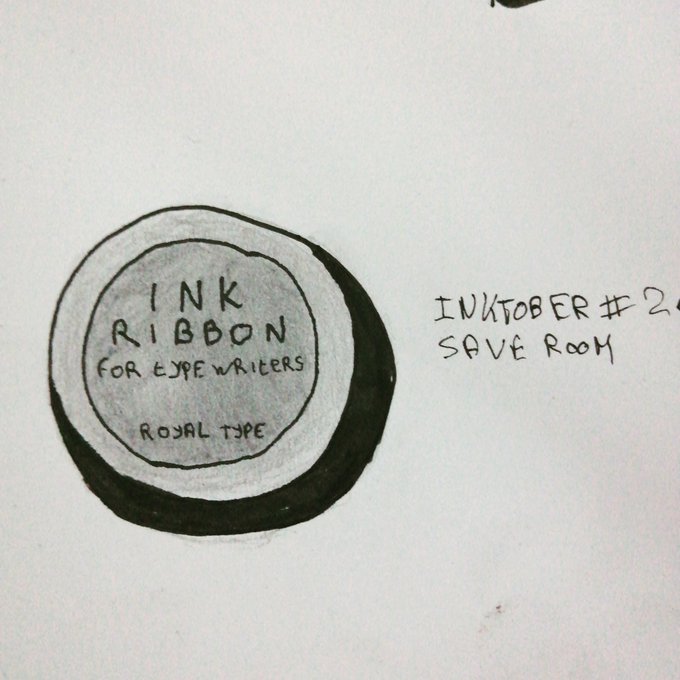 INK
RIBBON
FOR tYPE WRItERS
ROYAL TYPE
INKTOBER #2
SAVE ROOM